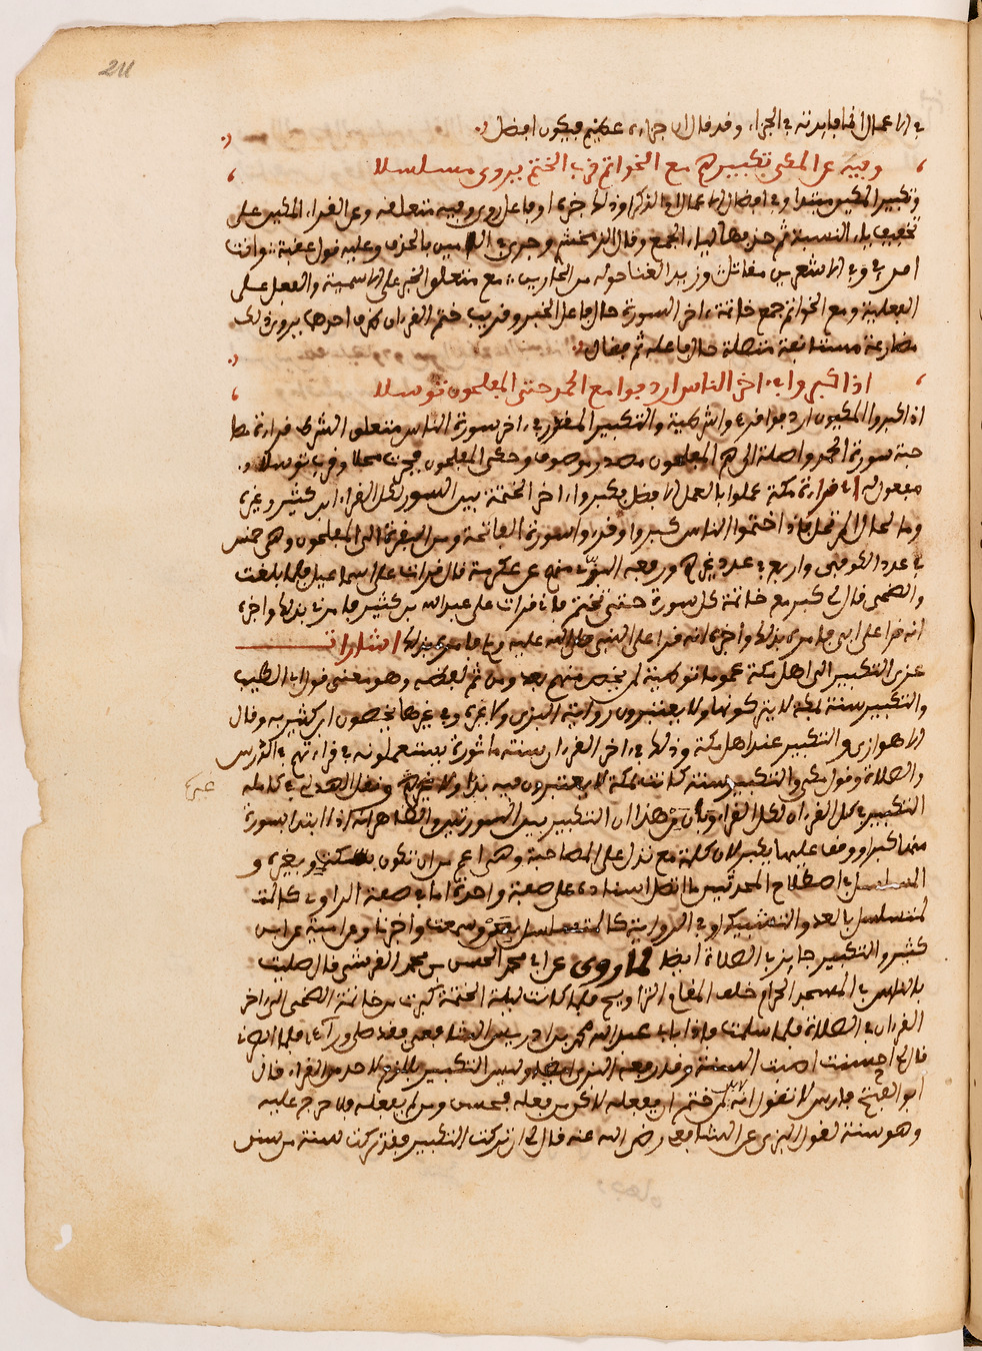 211
في الاعمال انما فايدته في الجزاء وقد قال ان جزاءه عظيم فيكون افضل
وفيه عن المكين تكبيرهم مع الخواتم قرب الختم يروى مسلسلا
وتكبير المكين مبتدا وفي افضل الاعمال والذكر وذلك خبره او فاعل روي وفيه متعلقه وعن القراء المكين على
تخفيف ياء النسبة ثم حذفها لياء الجمع وقال الزمخشري وجرى في الامين بالحذف وعليه قول عقبة توافت
مع متعلق الخبر على الاسمية والفعل على
الفعلية ومع الخواتم جمع خاتمة اخر السورة حال فاعل الخبر وقريب ختم القرءان ظرف احدهما يروى ذلك
مضارعة مستانفة متصلة حال فاعله ثم فقال
اذا كبروا في ءاخر الناس اردفوا مع الحمد حتى المفلحون توسلا
اذا كبروا المكيون اردفوا قرءوا شرطية والتكبير المقدر في ءاخر سورة الناس متعلق الشرط قراءة مصا
حبة سورة الحمد واصلة الى هم المفلحون مصدر موصوف وحتى المفلحون فجرت محلا وقرب توسلا
مفعول له اي قراءة مكة عملوا بالعمل الافضل فكبروا ءاخر الختمة بين السور لكل القراء ابن كثير وغيره
وما لحال المرتحل فاذا ختموا الناس كبروا وقرءوا سورة الفاتحة ومن البقرة الى المفلحون وهي خمس
في عدد الكوفي واربع في عدد غيرهم ورفعه البزي منهم عن عكرمة قال قرات على اسماعيل فلما بلغت
والضحى قال لي كبر مع خاتمة كل سورة حتى تختم فاني قرات على عبد الله بن كثير فامرني بذلك واخبره
انه قرا على ابي فامره بذلك واخبره انه قرا على النبي صلى الله عليه وسلم فامره بذلك اشارات
عزى التكبير الى اهل مكة عموما توطية لم يخص منهم بعد ومن ثم لفظه وهو معنى قول ابي الطيب
والتكبير سنة بمكة لا يتركونها ولا يعتبرون رواية البزي ولا غيره وفي غيرها يخصون ابن كثير به وقال
الاهوازي والتكبير عند اهل مكة وذلك في ءاخر القرءان سنة ماثورة يستعملونه في قراءتهم في الدرس
والصلاة وقول مكي والتكبير سنة كانت بمكة لا يعتبرون فيه بذا ولا غيرهم ونقل الهذلي في كامله
التكبير في كل القرءان لكل القراء وبان من هذا ان التكبير بين السورتين والظاهر انه اذا ابتدا بسورة
منها كبر او وقف عليها يكبر لان كلمة مع تدل على المصاحبة وهي اعم من ان تكون بسكت وبغيره و
المسلسل في اصطلاح المحدثين ما اتصل اسناده على صفة واحدة اما في صفة الراوي كالمت
لمتسلسل بالعد والتشبيك او في الرواية كالمتسلسل بعن وسمعت واخبرنا
كثير والتكبير جايز في الصلاة ايضا لما روى عن ابي محمد الحسن بن محمد القرشي قال صليت
بالناس في المسجد الحرام خلف المقام التراويح فلما كانت ليلة الختمة كبرت من خاتمة الضحى الى ءاخر
القرءان في الصلاة فلما سلمت فاذا بابي عبد الله محمد بن ادريس الشافعي فقد صلى ورائي فلما ابصرني
قال لي احسنت اصبت السنة وقد رفعه البزي ايضا وليس التكبير بلازم لاحد من القراء قال
ابو الفتح فارس لا نقول انه لابد لمن ختم ان يفعله لاكن من فعله فحسن ومن لم يفعله فلا حرج عليه
وهو سنة لقول البزي عن الشافعي رضي الله عنه قال لي ان تركت التكبير فقد تركت سنة من سنن